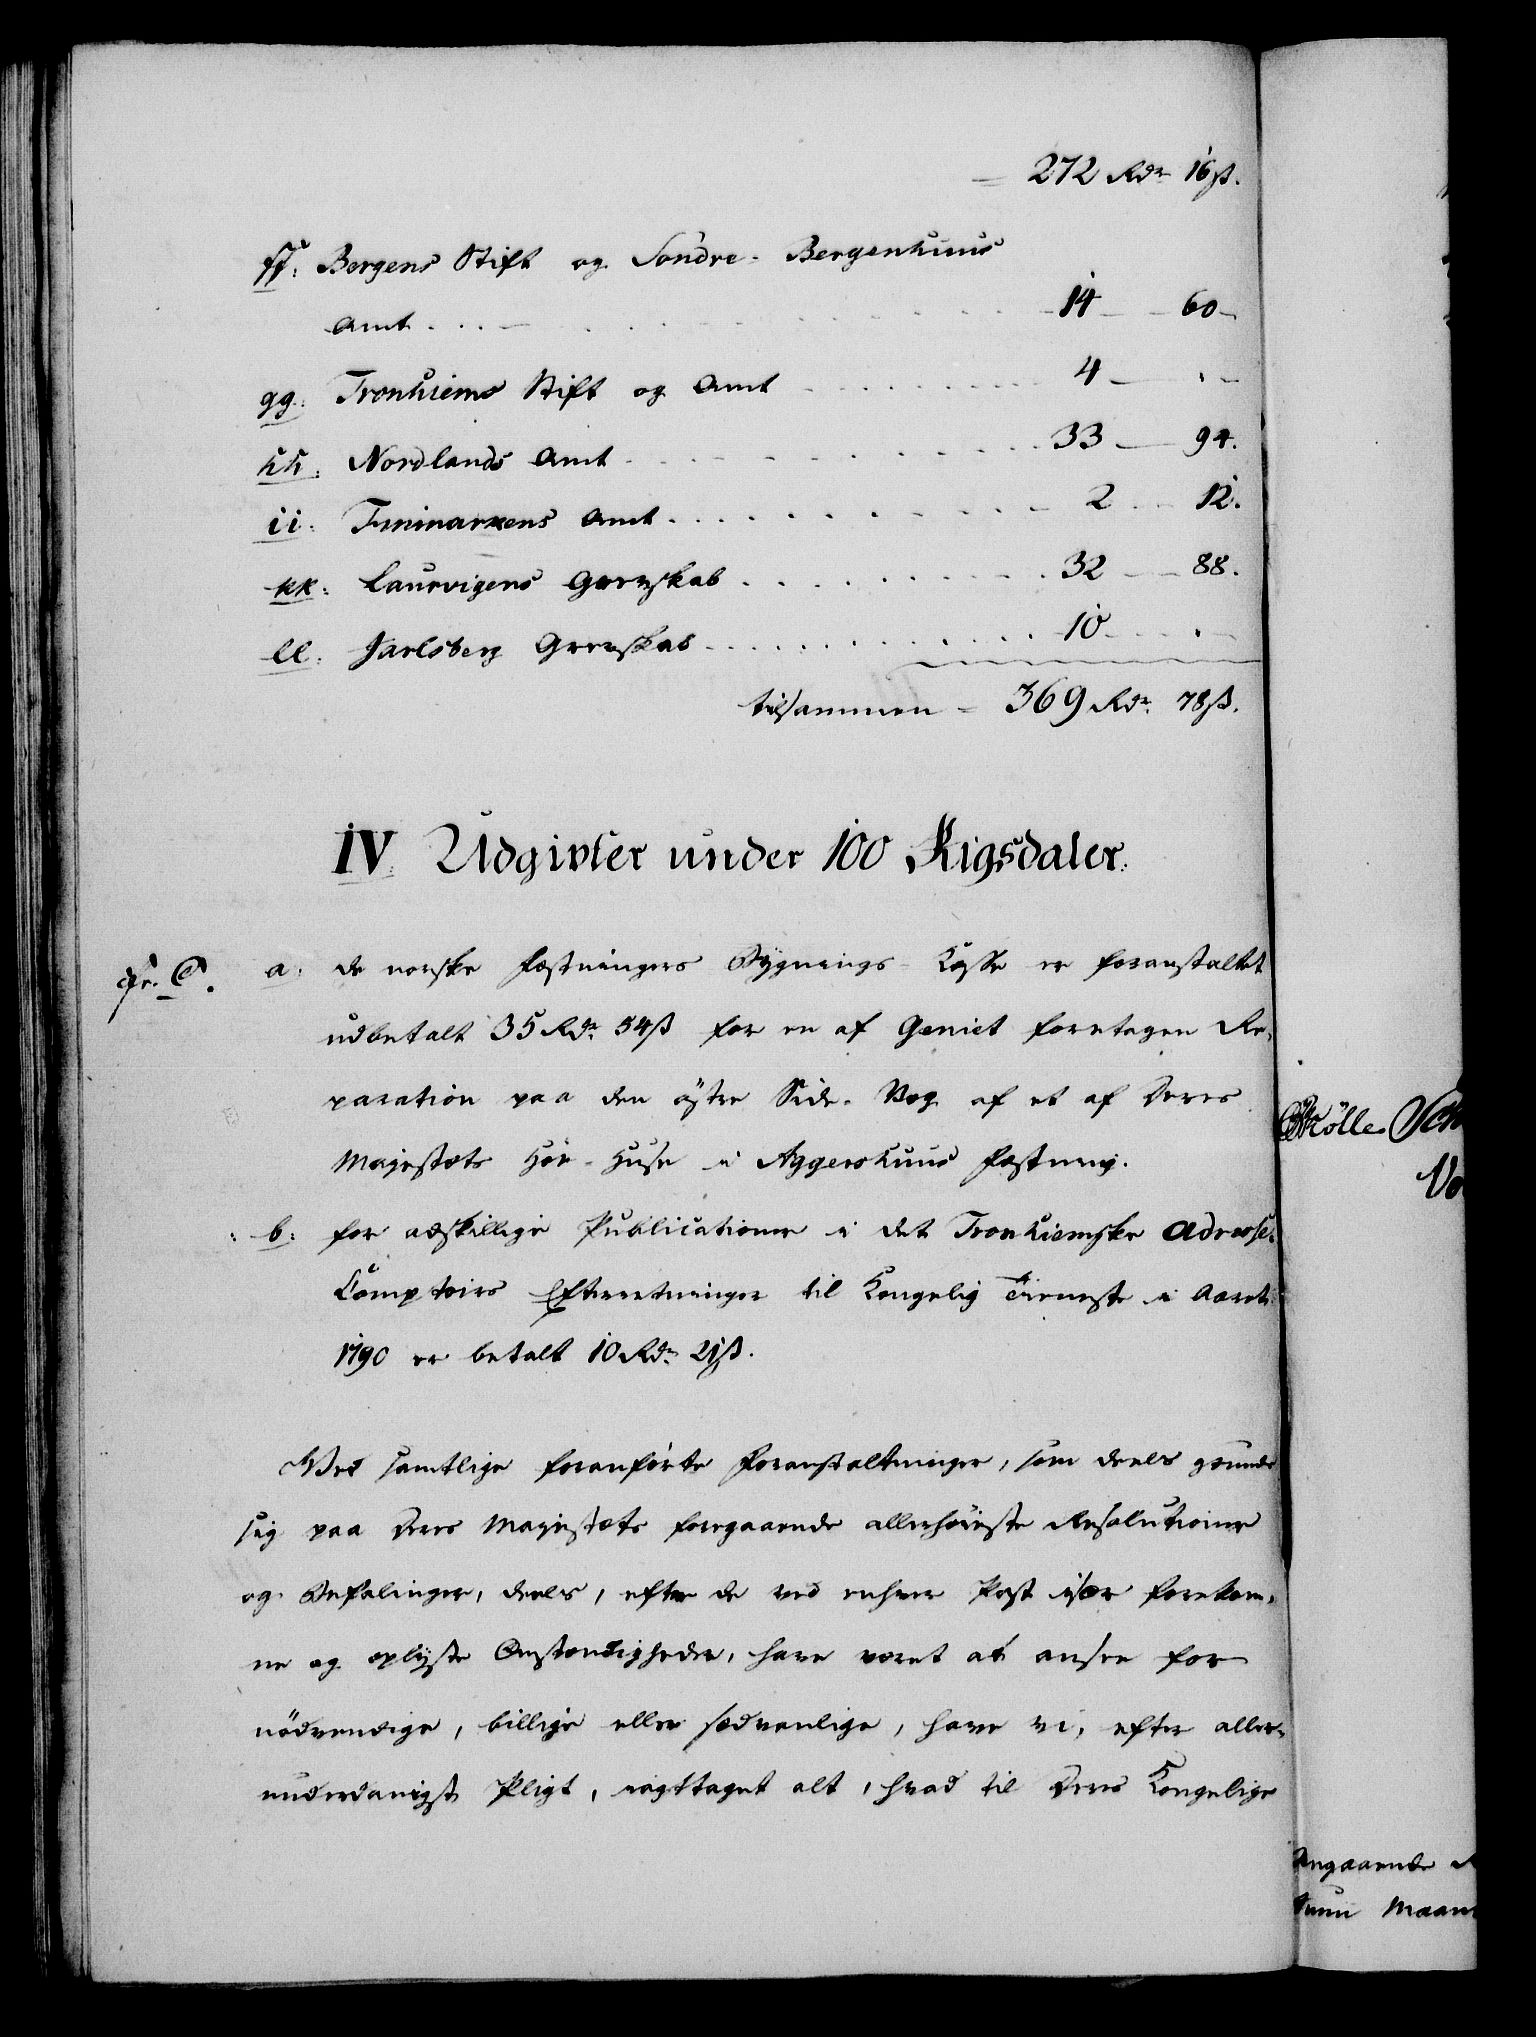 = 272 Rdr 16 ß.
ff: Bergens Stift og Sóndre-Bergenhuus
Amt . . . . . . . . . 14 — 60 –
gg: Tronhiems Stift og Amt . . . . . . . . 4 — " –
hh: Nordlands Amt . . . . . . . . . 33 — 94.
ii: Finmarkens Amt . . . . . . . . . 2 — 12.
kk: Laurvigens Grevskab . . . . . . . . . 32 — 88.
ll: Jarlsberg Grevskab . . . . . . . . . 10 — " –
tilsammen = 369 Rdr 78 ß.
IV. Udgivter under 100 Rigsdaler.
a: de norske Fæstningers Bygnings-Kasse er foranstaltet
udbetalt 35 Rdr 54 ß for en af Geniet foretagen Re-
paration paa den östre Side-Væg af et af Deres
Majestæts Höe-Huse i Aggershuus Fæstning.
b: for adskillige Publicationer i det Tronhiemske Adresse-
Comptoirs Efterretninger til Kongelig Tieneste i Aaret
1790 er betalt 10 Rdr 21 ß.
Ved samtlige foranförte Foranstaltninger, som deels grunde
sig paa Deres Majestæts foregaaende allerhöieste Resolutioner
og Befalinger, deels, efter de ved enhver Post især forekom-
ne og oplyste Omstændigheder, have været at ansee for
nödvendige, billige eller sædvanlige, have vi, efter aller-
underdanigst Pligt, iagttaget alt, hvad til Deres Kongelige
Angaaende
Maan